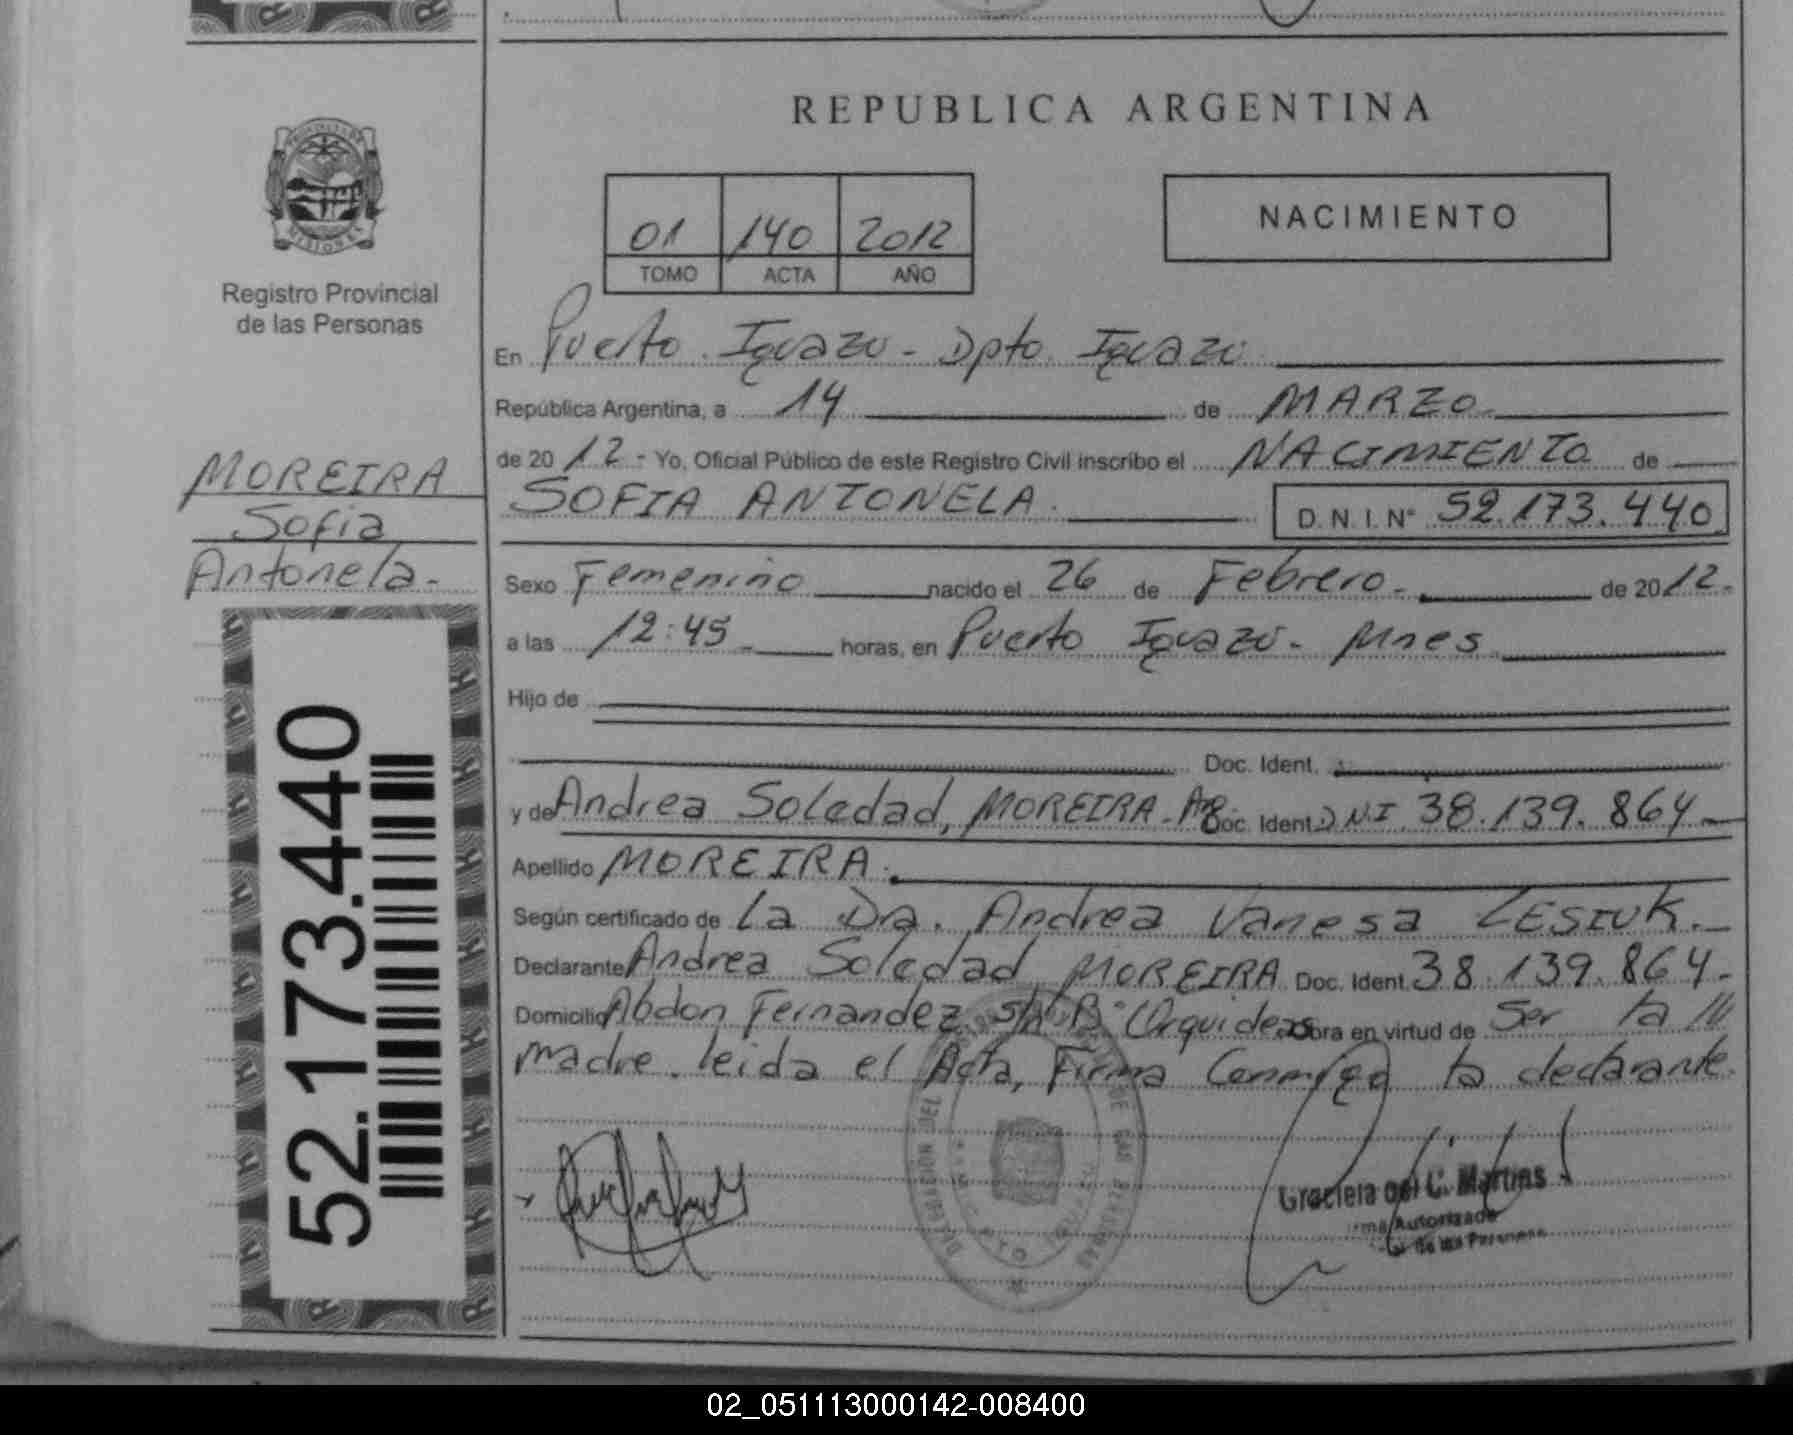 REPUBLICA ARGENTINA
PROVINCIA DE
MISIONES
Registro Provincial
de las Personas
01 140 2012
TOMO ACTA AÑO
NACIMIENTO
En Puerto Iguazu - Dpto. Iguazu
República Argentina, a 14 de MARZO
de 2012 - Yo, Oficial Público de este Registro Civil inscribo el NACIMIENTO de
SOFIA ANTONELA. D. N. I. Nº 52.173.440
MOREIRA
Sofia
Antonela.-
Sexo Femenino nacido el 26 de Febrero.- de 2012.-
a las 12:45 horas, en Puerto Iguazu - Mnes
Hijo de
Doc. Ident.
y de Andrea Soledad, MOREIRA - Arg. Doc. Ident. DNI 38.139.864
Apellido MOREIRA.
Según certificado de La Dra. Andrea Vanesa LESIUK.
Declarante Andrea Soledad MOREIRA Doc. Ident. 38.139.864.-
Domicilio Abdon Fernandez s/n Bº Orquideas obra en virtud de Ser la
madre. leida el Acta, Firma Conmigo la declarante.
52.173.440
DELEGACION DEL
DE LAS PERSONAS
Graciela del C. Martins
Firma Autorizada
de las Personas
02_051113000142-008400